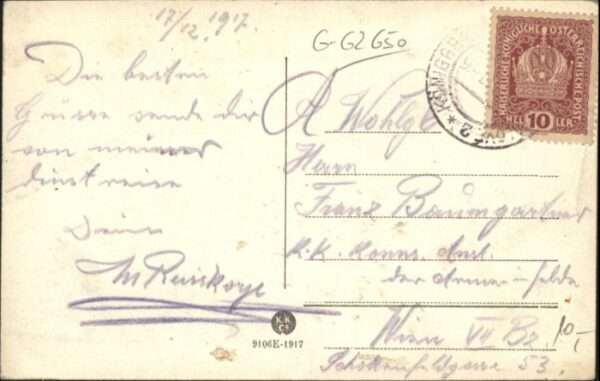 17/12. 1917.
G-G2650
Die besten
Grüsse sende dir
von meiner
dienstreise
Dein
KÖNIGGR
KAISERLICHE KÖNIGLICHE ÖSTERREICHISCHE POST
10
HELLER
A Wohlg
Herrn
Franz Baumgartner
K.K. Komms. Amt.
der Armee im felde
Wien VII Bz
Schottenfeldgasse 53.
10,-
9106E-1917